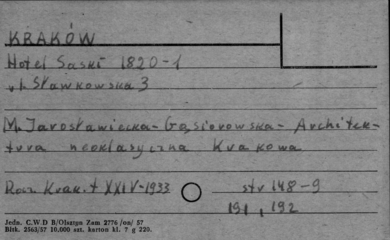 KRAKÓW
Hotel Saski 1820-1
ul. Sławkowska 3
M. Jarosławiecka-Gąsiorowska- Architek-
tura neoklasyczna Krakowa
Rocz. Krak. t XXIV-1933 str 148-9
191, 192
Jedn. C.W.D B/Olsztyn Zam 2776 /on/ 57
Bltk. 2563/57 10.000 szt. karton kl. ? g 220.